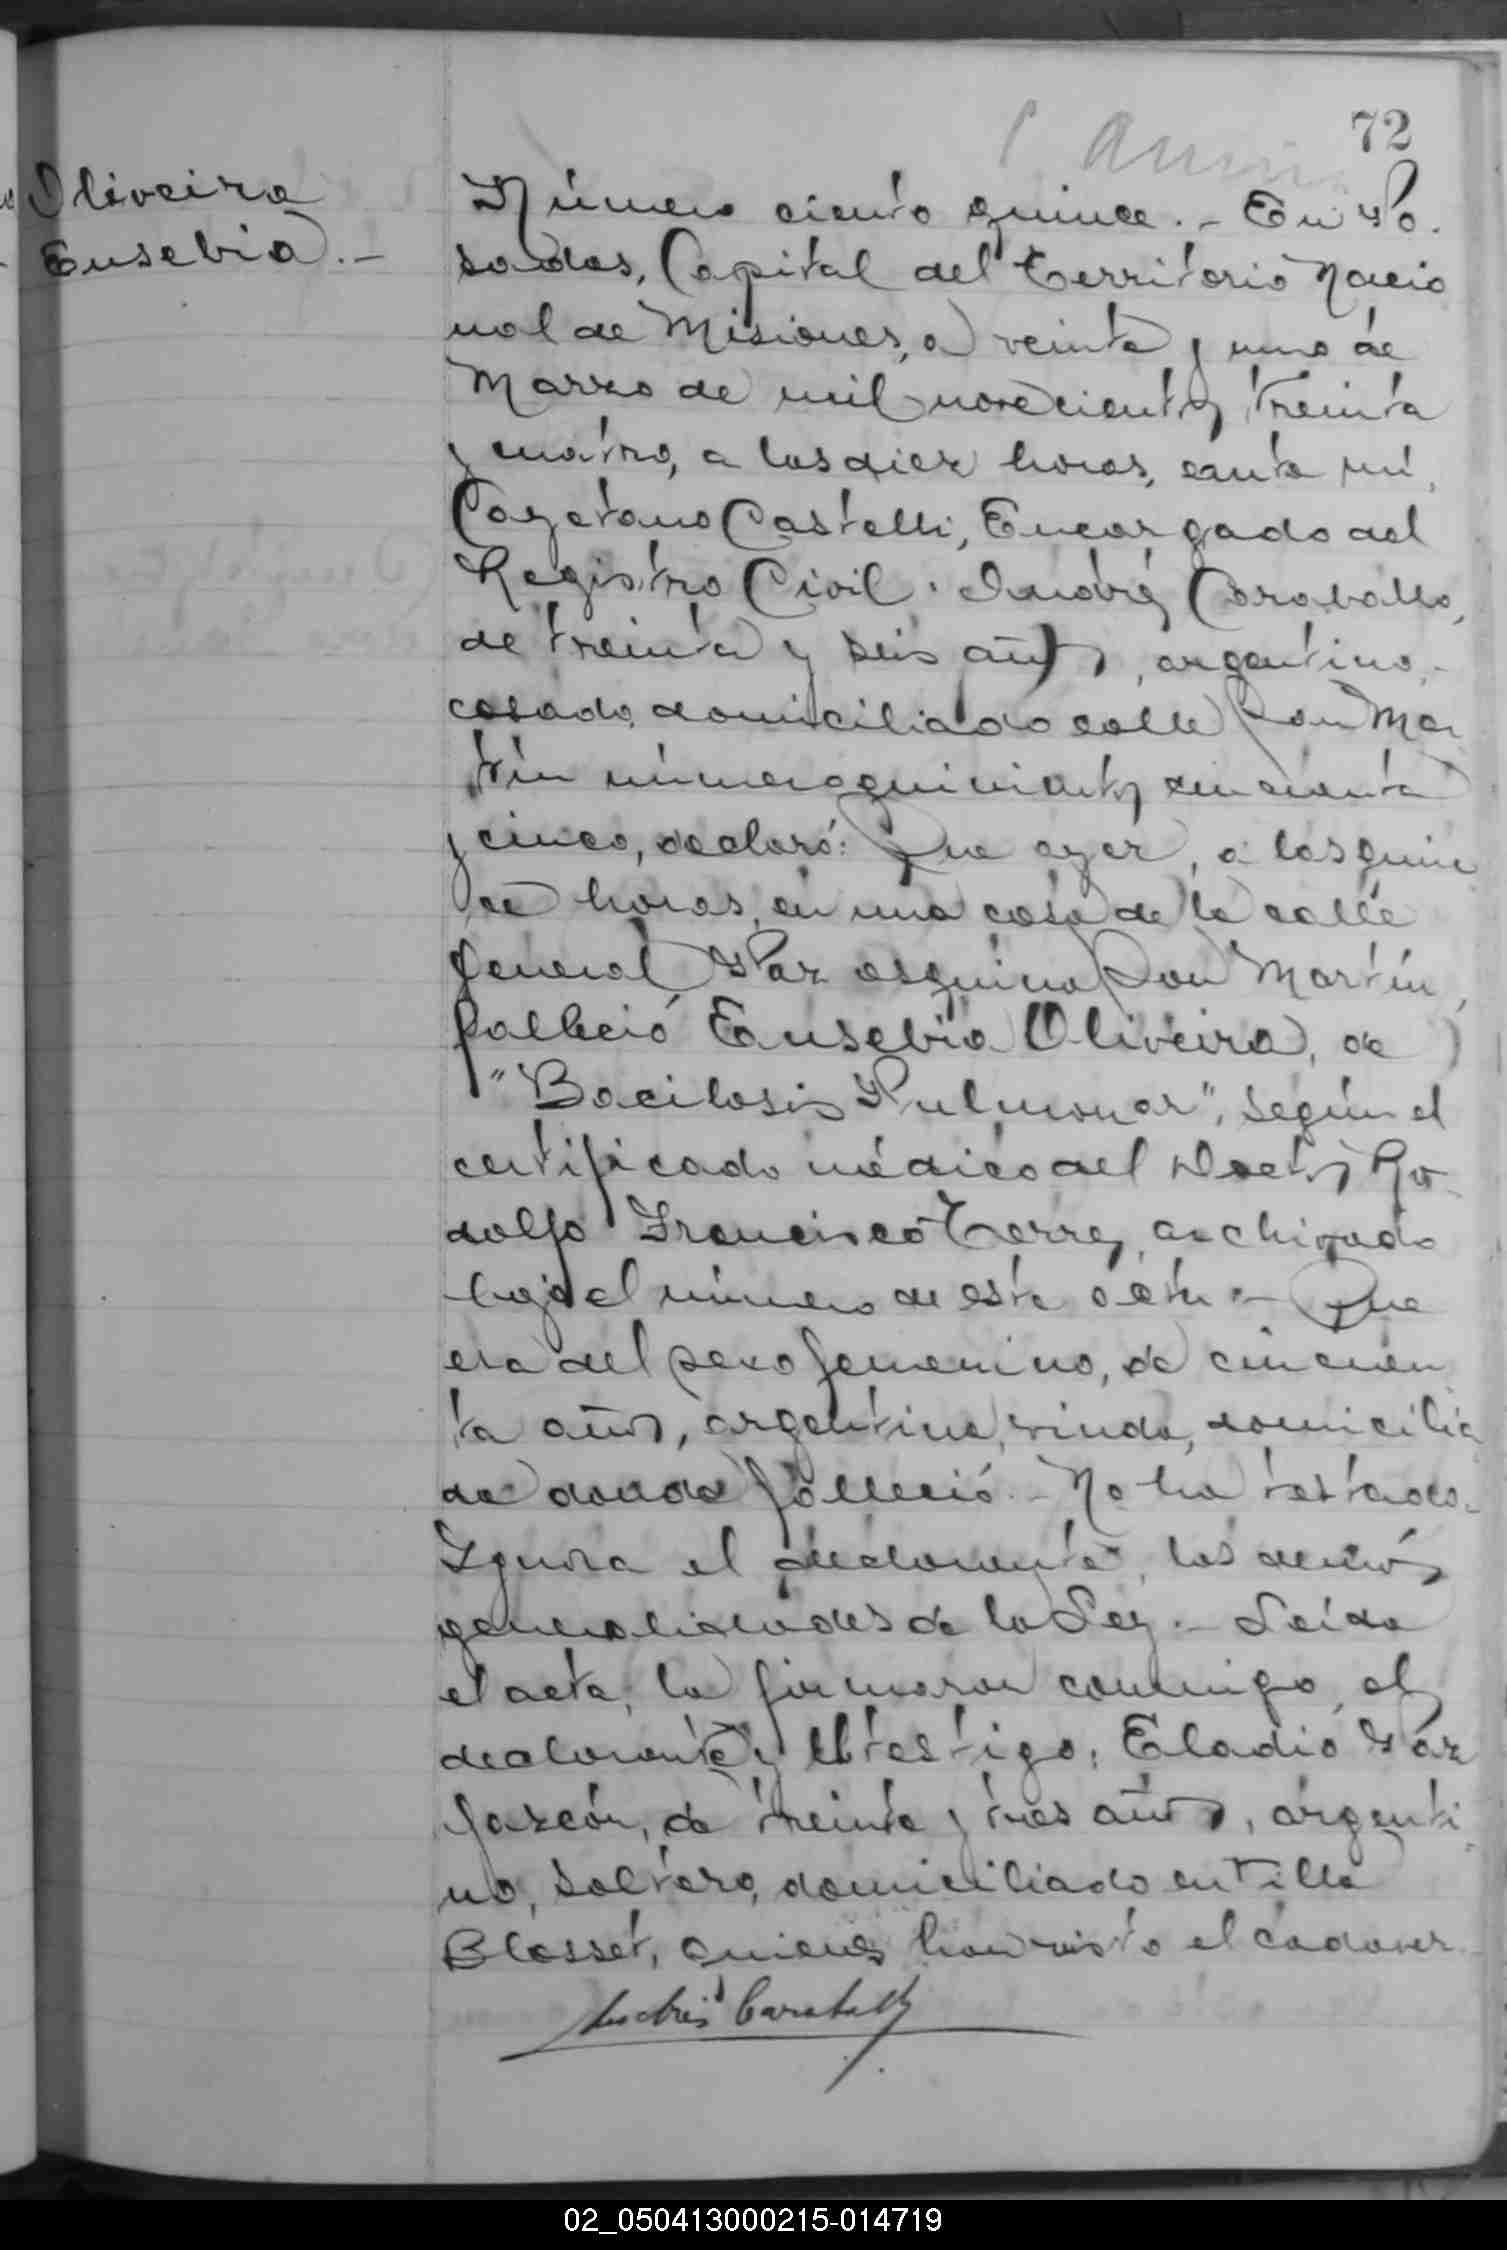 72
Oliveira
Eusebia.-
Número ciento quince.- En Po-
sadas, Capital del Territorio Nacio
nal de Misiones, a veinte y uno de
Marzo de mil novecientos treinta
y cuatro, a las diez horas, ante mí,
Cayetano Castelli, Encargado del
Registro Civil. Andrés Caraballo,
de treinta y seis años, argentino,-
casado, domiciliado calle San Mar
tín número quinientos cincuenta
y cinco, declaró: Que ayer, a las quin
ce horas, en una casa de la calle
General Paz esquina San Martín,
falleció Eusebia Oliveira, de
"Bacilosis Pulmonar", según el
certificado médico del Doctor Ro-
dolfo Francisco Torres, archivado
bajo el número de este acta.- Que
era del sexo femenino, de cincuen
ta años, argentina, viuda, domicilia
da donde falleció.- No ha testado.-
Ignora el declarante, las demás
generalidades de la Ley.- Leída
el acta, la firmaron conmigo, el
declarante y el testigo: Eladio Paz
, de treinta y tres años, argenti
no, soltero, domiciliado en Villa
Blosset, quienes han visto el cadáver.
Andrés Caraballo
02_050413000215-014719